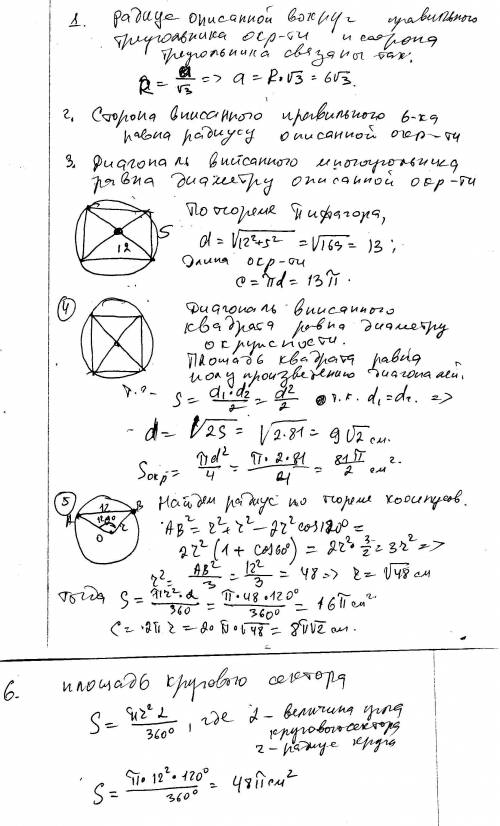 1. Радиус описанной вокруг правильного
треугольника окр-ти и сторона
треугольника связаны так:
R = a/√3 => a = R·√3 = 6√3.
2. Сторона вписанного правильного 6-ка
равна радиусу описанной окр-ти
3. Диагональ вписанного многоугольника
равна диаметру описанной окр-ти
По теореме Пифагора,
12
5
d = √12²+5² = √169 = 13;
Длина окр-ти
C = πd = 13π.
4
Диагональ вписанного
квадрата равна диаметру
окружности.
Площадь квадрата равна
полупроизведению диагоналей.
S = d₁·d₂/2 = d²/2 т.к. d₁=d₂ =>
d = √2S = √2·81 = 9√2 см.
Sокр = πd²/4 = π·2·81/4 = 81π/2 см².
5
A
12
B
120°
r
O
Найдем радиус по теореме косинусов.
AB² = r²+r² - 2r² cos120° =
2r²(1+cos60°) = 2r²·3/2 = 3r² =>
r² = AB²/3 = 12²/3 = 48 => r = √48 см
тогда S = πr²·α/360 = π·48·120°/360° = 16π см²
C = 2πr = 2π·√48 = 8π√2 см.
6. площадь кругового сектора
S = πr²α/360°, где α - величина угла
кругового сектора
r - радиус круга
S = π·12²·120°/360° = 48π см²